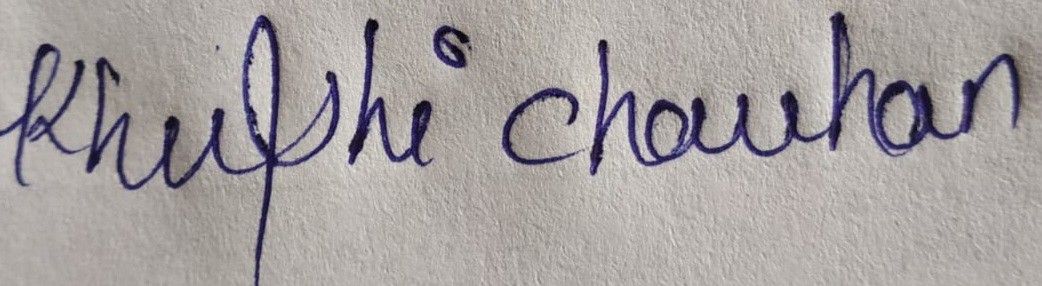 Khufshi chauhan